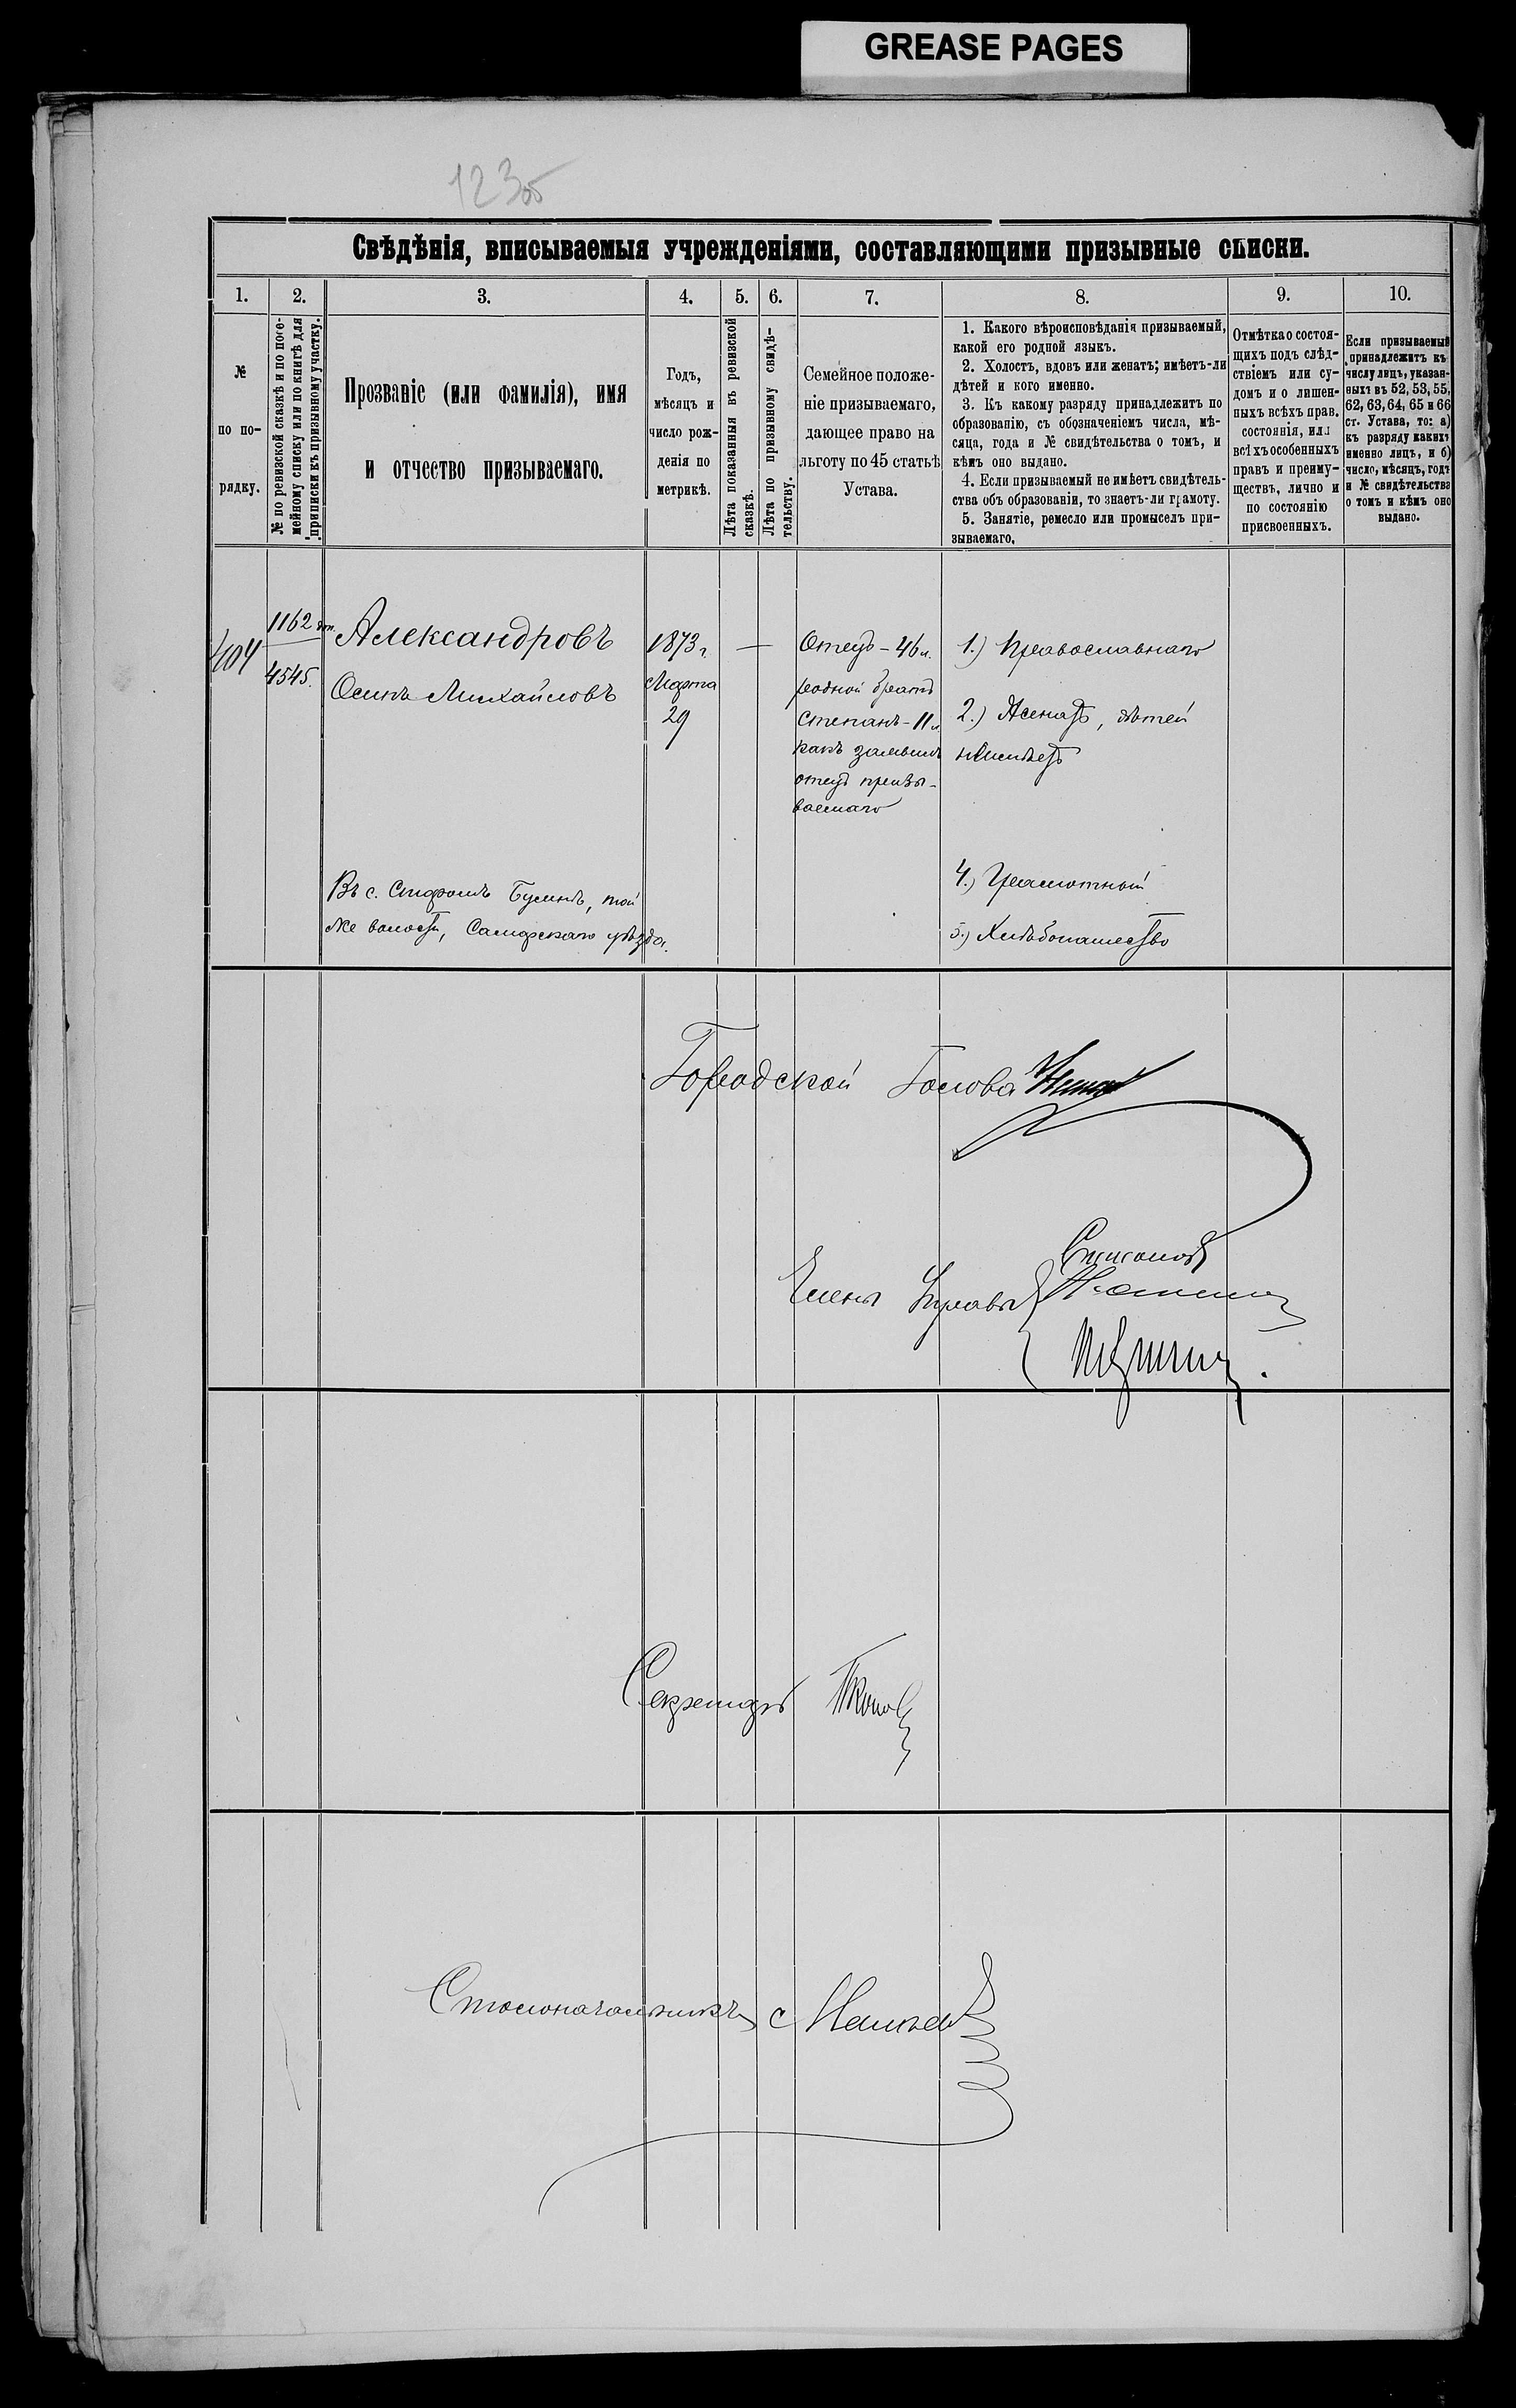 GREASE PAGES
123об
Свѣдѣнія, вписываемыя учрежденіями, составляющими призывные списки.
1.
2.
3.
4.
5.
6.
7.
8.
9.
10.
№
по по-
рядку.
№ по ревизской сказкѣ и по посе-
мейному списку или по книгѣ для
приписки къ призывному участку.
Прозваніе (или фамилія), имя
и отчество призываемаго.
Годъ,
мѣсяцъ и
число рож-
денія по
метрикѣ.
Лѣта показанныя въ ревизской
сказкѣ.
Лѣта по призывному свидѣ-
тельству.
Семейное положе-
ніе призываемаго,
дающее право на
льготу по 45 статьѣ
Устава.
1. Какого вѣроисповѣданія призываемый,
какой его родной языкъ.
2. Холостъ, вдовъ или женатъ; имѣетъ-ли
дѣтей и кого именно.
3. Къ какому разряду принадлежитъ по
образованію, съ обозначеніемъ числа, мѣ-
сяца, года и № свидѣтельства о томъ, и
кѣмъ оно выдано.
4. Если призываемый не имѣетъ свидѣтель-
ства объ образованіи, то знаетъ-ли грамоту.
5. Занятіе, ремесло или промыселъ при-
зываемаго.
Отмѣтка о состоя-
щихъ подъ слѣд-
ствіемъ или су-
домъ и о лишен-
ныхъ всѣхъ прав.
состоянія, или
всѣхъ особенныхъ
правъ и преиму-
ществъ, лично и
по состоянію
присвоенныхъ.
Если призываемый
принадлежитъ къ
числу лицъ, указан-
ныхъ въ 52, 53, 55,
62, 63, 64, 65 и 66
ст. Устава, то: а)
къ разряду какихъ
именно лицъ, и б)
число, мѣсяцъ, годъ
и № свидѣтельства
о томъ и кѣмъ оно
выдано.
404
1162 доп.
4545.
Александровъ
Осипъ Михайловъ
1873 г.
Марта
29
—
Отецъ - 46 л.
родной братъ
Степанъ - 11 л
отецъ призы-
ваемаго
1.) Православнаго
2.) Женатъ, дѣтей
неимѣетъ
4.) Грамотный
5.) Хлѣбопашество
Въ с. Старомъ Буянѣ, той
же волости, Самарскаго уѣзда.
Городской Голова
Члены Управы
Секретарь
Столоначальникъ